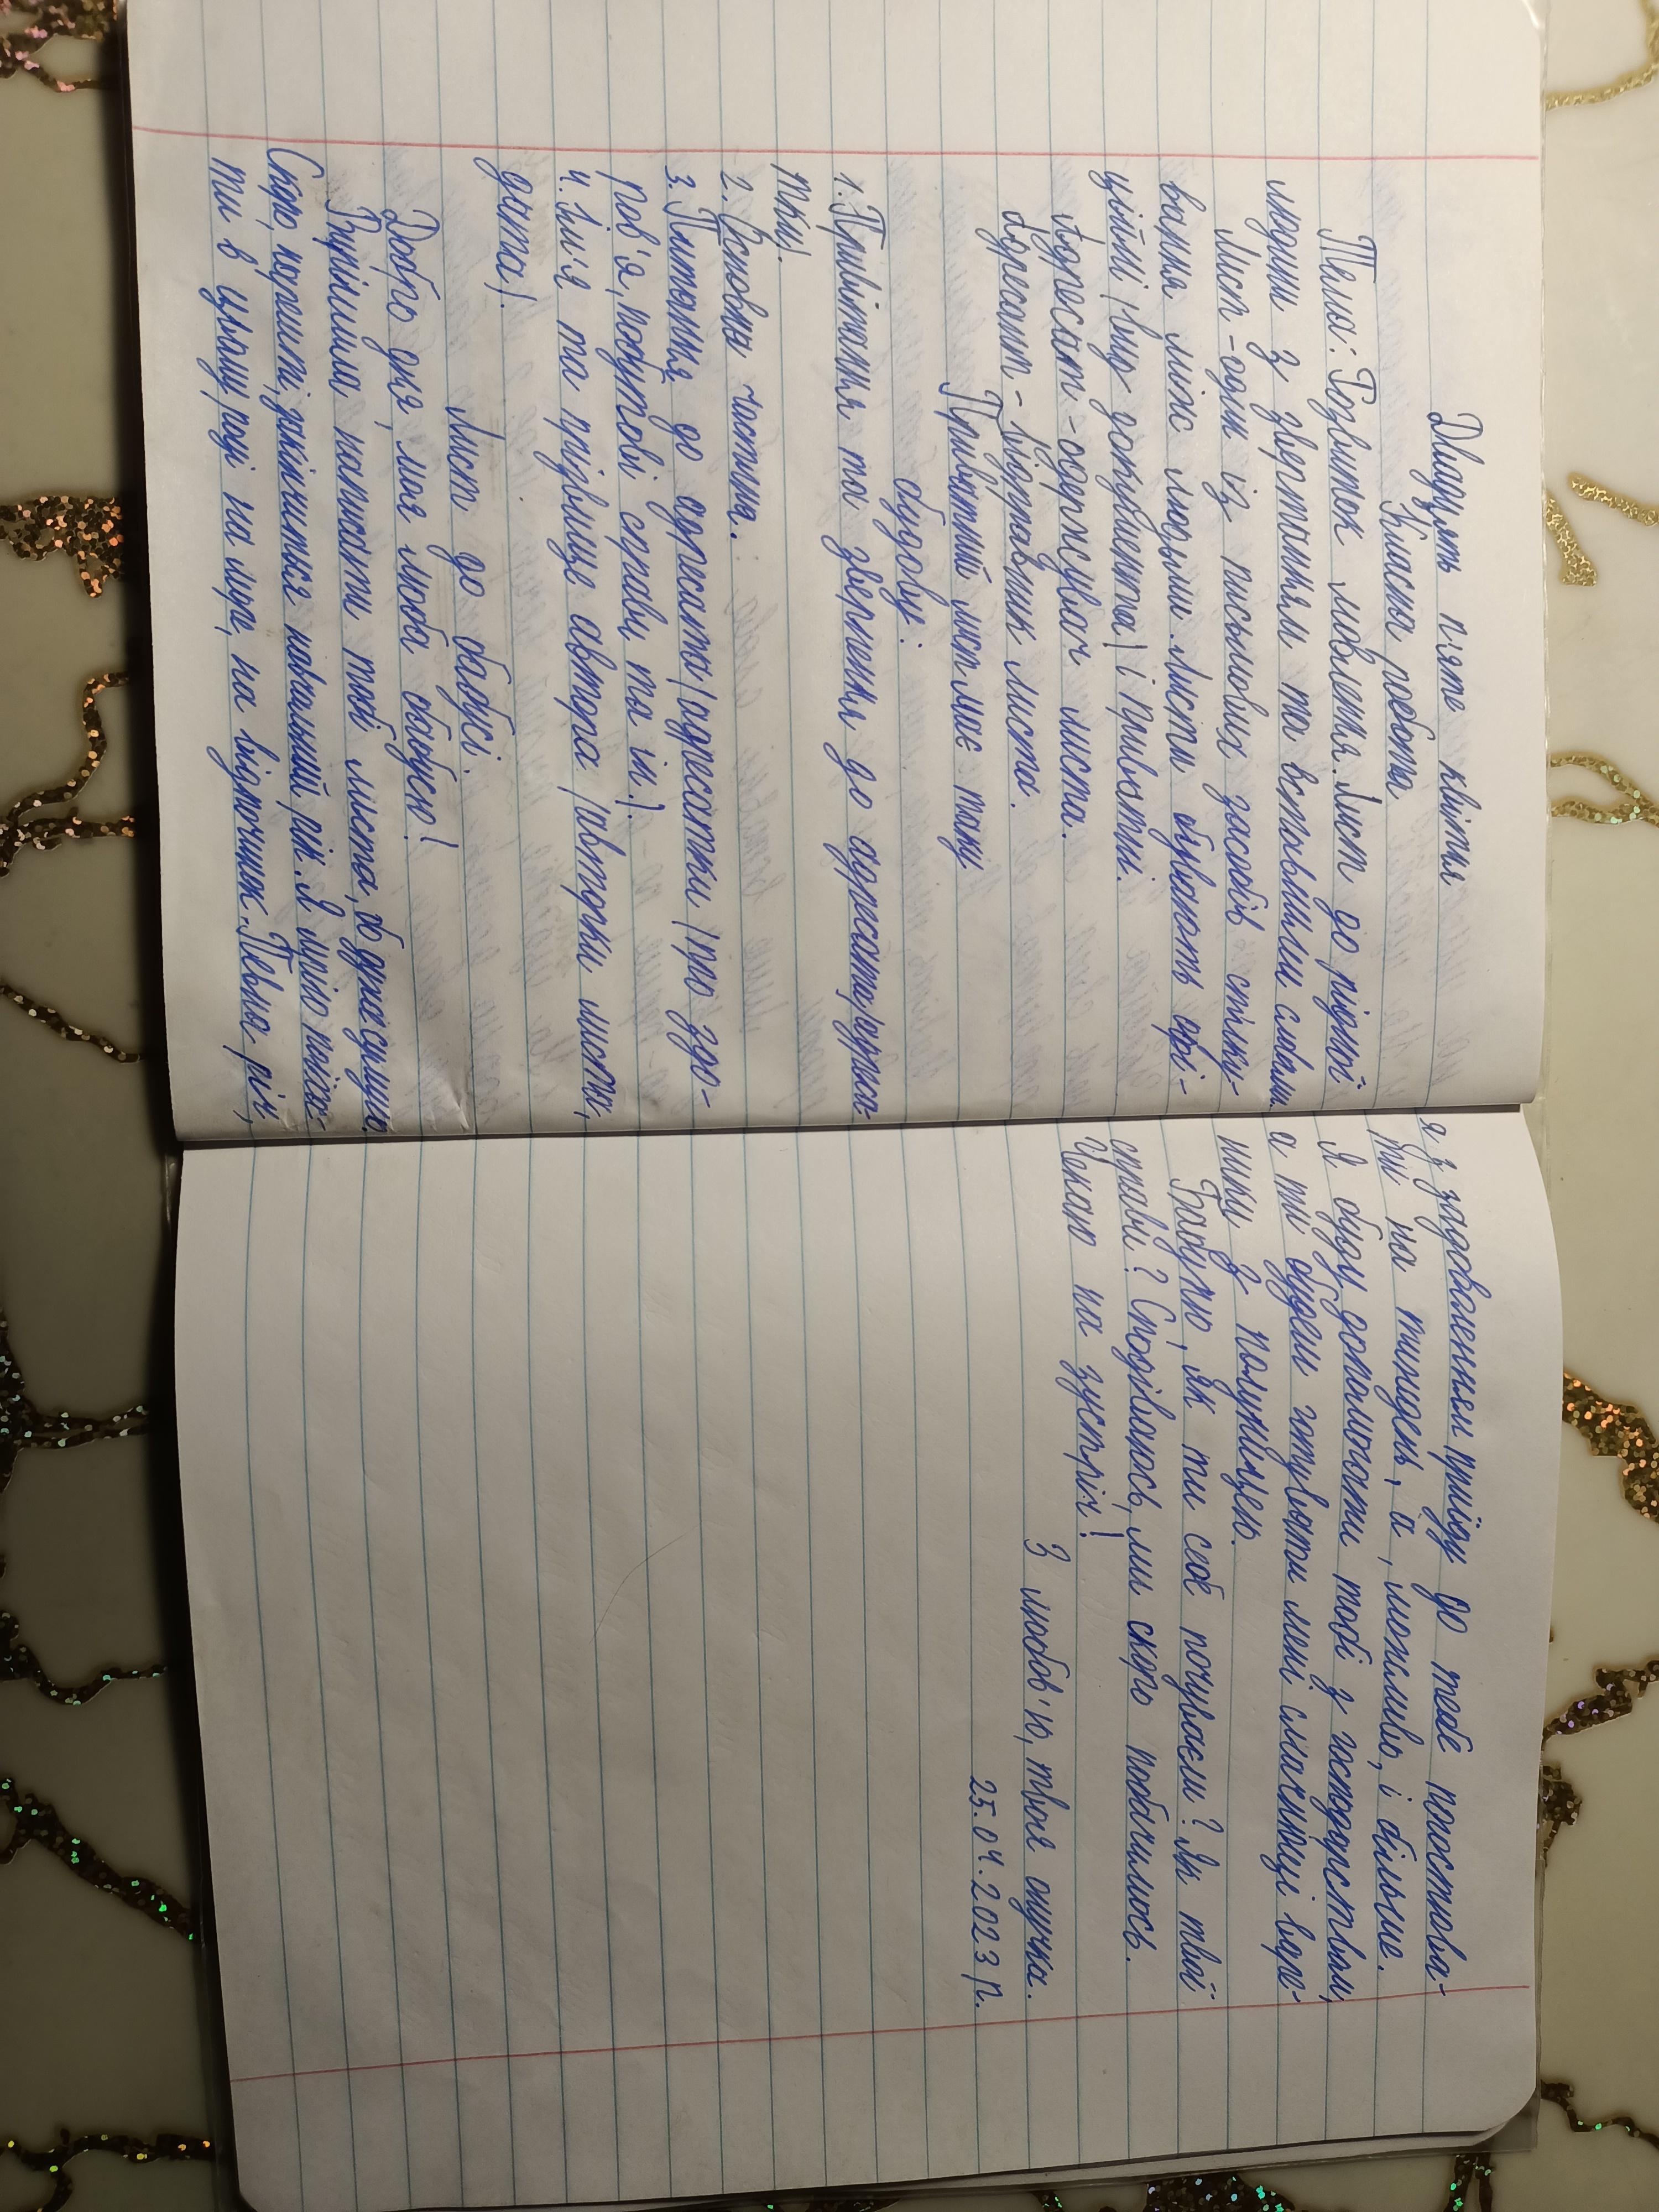 Двадцять п'яте квітня
Класна робота
Тема: Розвиток мовлення. Лист до рідної
людини з звертанням та вставними словами.
Лист - один із писемових засобів спілку-
вання між людьми. Листи бувають офі-
ційні (вид документа) і приватні.
Адресат - одержувач листа.
Адресант - відправник листа.
Приватний лист має таку
будову:
1. Привітання та звернення до адресата/адреса-
тки).
2. Основна частина.
3. Питання до адресата (адресатки) про здо-
ров'я, побутові справи та ін.).
4. Ім'я та прізвище автора (авторки листа,
дата).
Лист до бабусі.
Доброго дня, моя люба бабусю!
Вирішила написати тобі листа, бо дуже сумую.
Скоро, нарешті, закінчиться навчальний рік. Я мрію поїха-
ти в цьому році на море, на відпочинок. Певна річ,
я з задоволенням приїду до тебе погостюва-
ти на тиждень, а, можливо, і більше.
Я буду допомагати тобі з господарством,
а ти будеш готувати мені смачнющі варе-
ники з полуницею.
Бабулю, як ти себе почуваєш? Як твої
справи? Сподіваюсь, ми скоро побачимось.
Чекаю на зустріч!
З любов'ю, твоя онучка.
25.04.2023 р.